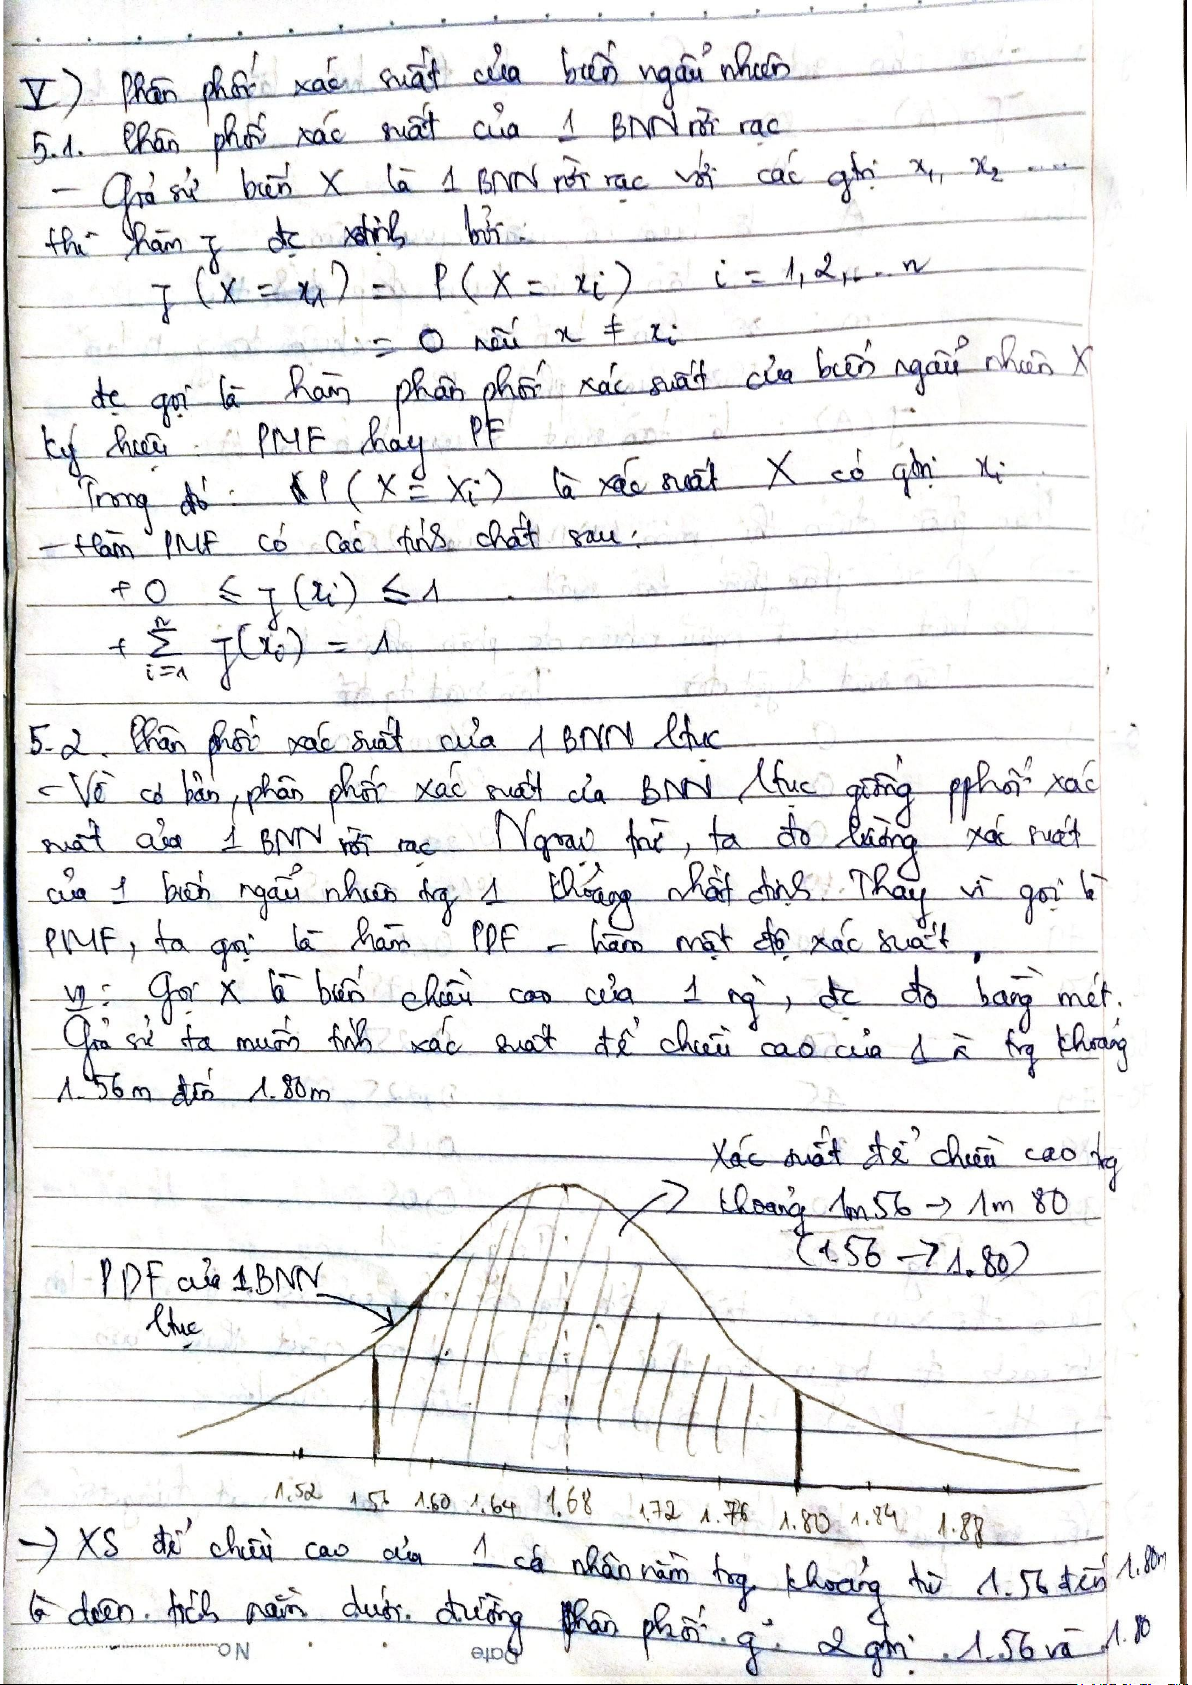 V) Phân phối xác suất của biến ngẫu nhiên
5.1. Phân phối xác suất của 1 BNN rời rạc
- Giả sử biến X là 1 BNN rời rạc với các gtrị x1, x2 ....
thì hàm f đc xđịnh bởi:
f (X = x1) = P (X = xi) i = 1, 2, ... n
= 0 nếu x ≠ xi
đc gọi là hàm phân phối xác suất của biến ngẫu nhiên X
Ký hiệu: PMF hay PF
Trong đó: P (X = Xi) là xác suất X có gtrị xi
- Hàm PMF có các tính chất sau:
+ 0 ≤ f (xi) ≤ 1
+ n∑i=1 f(xi) = 1
5.2. Phân phối xác suất của 1 BNN ltục
- Về cơ bản, phân phối xác suất của BNN ltục giống pphối xác
suất của 1 BNN rời rạc Ngoại trừ, ta đo lường xác suất
của 1 biến ngẫu nhiên trg 1 khoảng nhất định. Thay vì gọi là
PMF, ta gọi là hàm PDF - hàm mật độ xác suất.
VD: Gọi X là biến chiều cao của 1 ng`, đc đo bằng mét.
Giả sử ta muốn tính xác suất để chiều cao của 1 trg khoảng
1.56m đến 1.80m
Xác suất để chiều cao trg
khoảng 1m56 → 1m 80
(1.56 → 1.80)
PDF của 1 BNN
ltục
1.52 1.56 1.60 1.64 1.68 1.72 1.76 1.80 1.84 1.88
→ XS để chiều cao của 1 cá nhân nằm trg khoảng từ 1.56 đến 1.80m
là diện tích nằm dưới đường phân phối g 2 gtrị 1.56 và 1.80
Date No